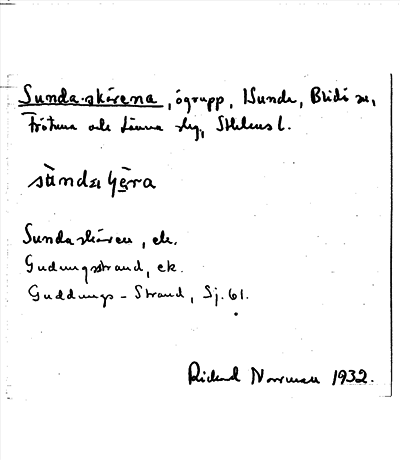 Sunda-skärena, ögrupp, Sunde, Blidö sn,
Frötuna och Länna skg, Sthlms l.
sùndaʃɛ̀ra
Sundaskären, ek.
Gudungsstrand, ek.
Guddungs-Strand, Sj. 61.
Rickard Norrman 1932.